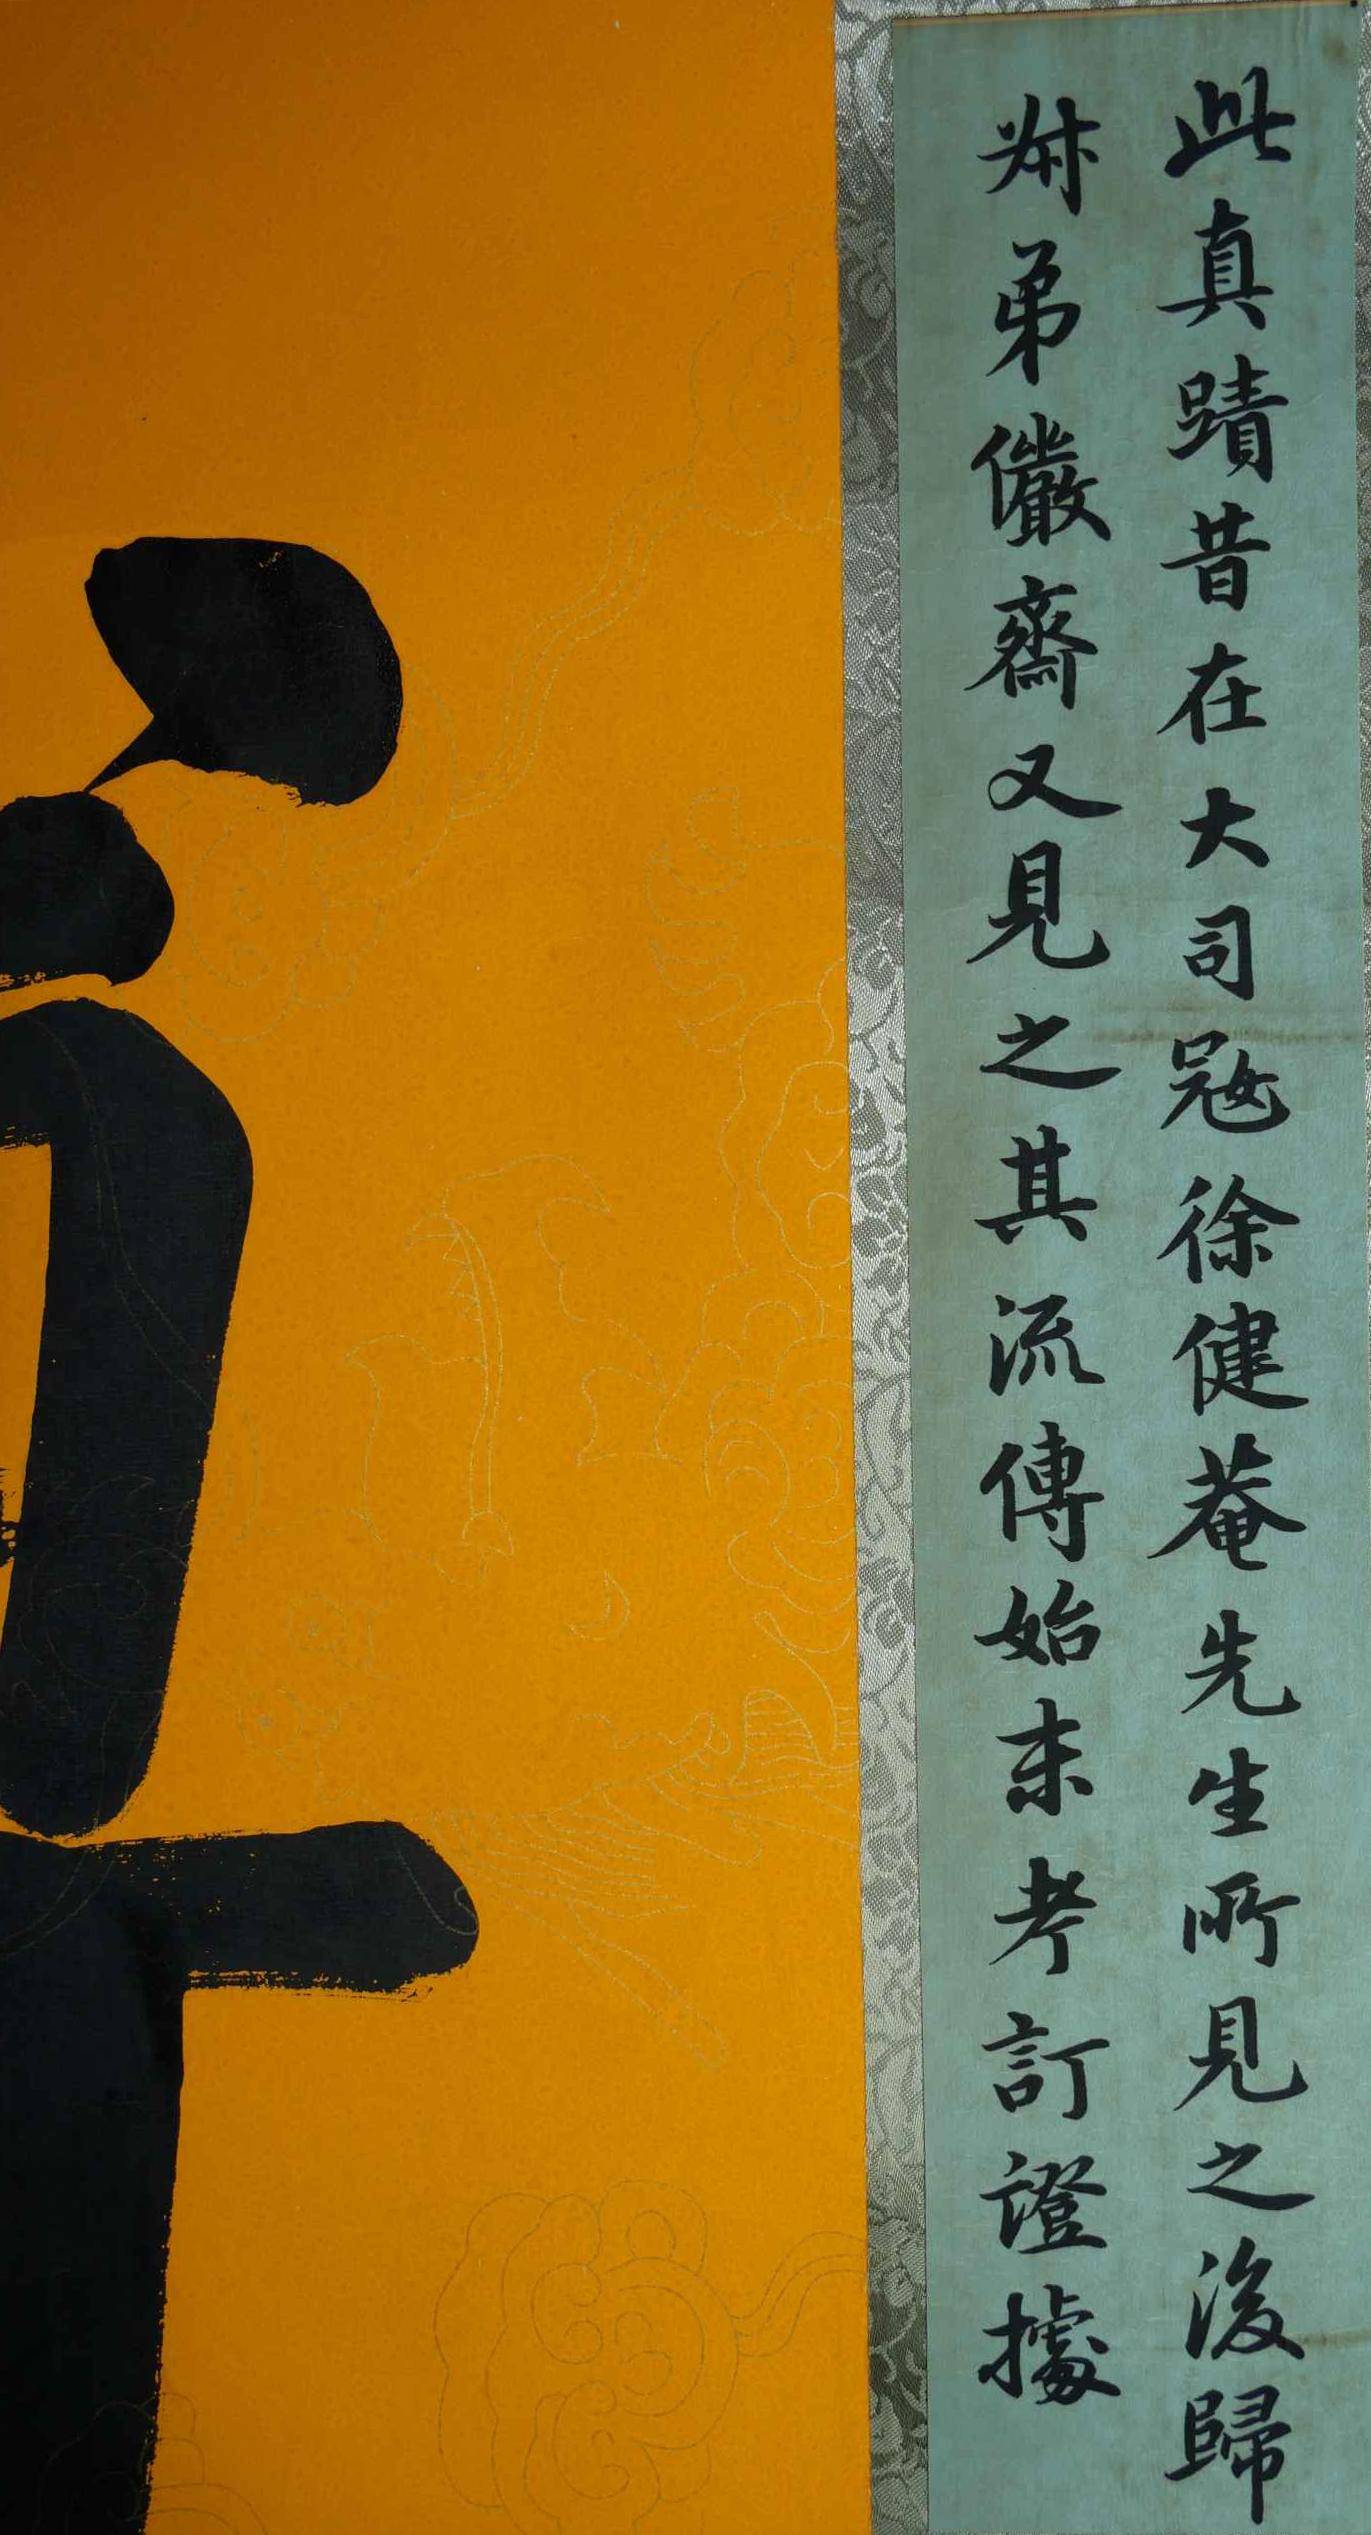 此真蹟昔在大司寇徐健菴先生所見之後歸
叔弟儼齋又見之其流傳始末考訂證據